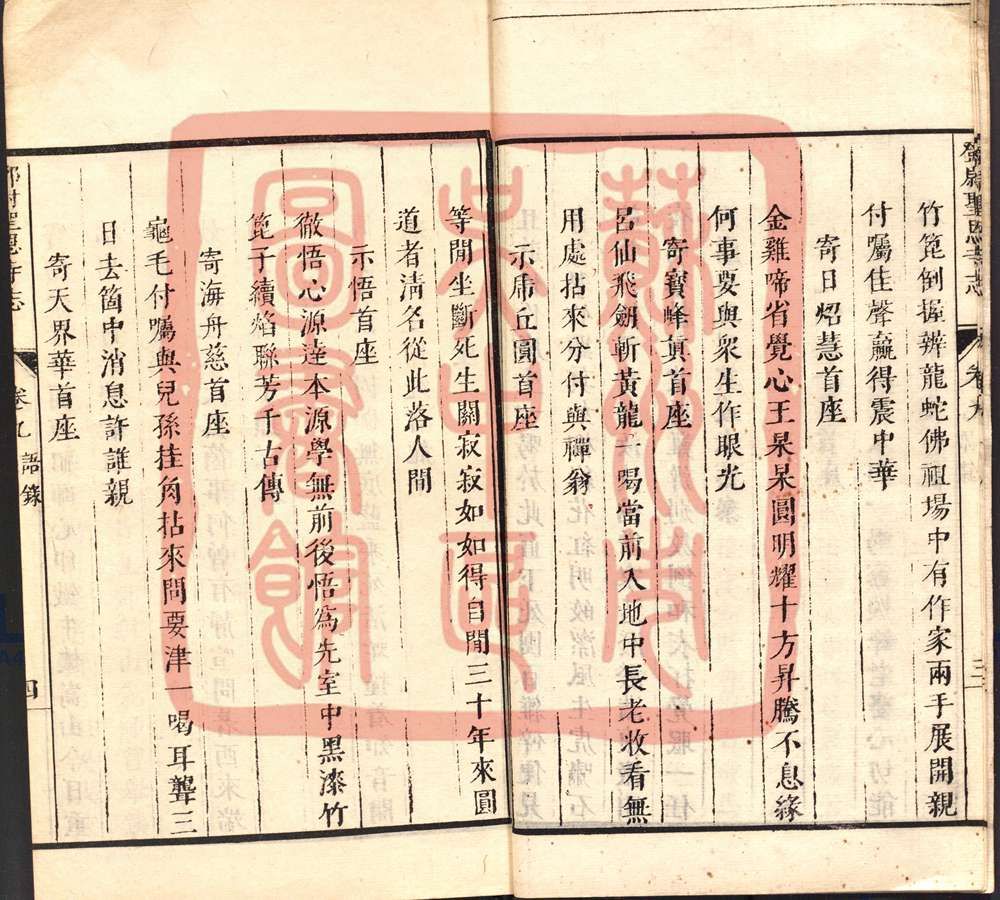 鄧尉聖恩寺志
卷九
三
竹篦倒握辨龍蛇佛祖場中有作家兩手展開親
付囑佳聲贏得震中華
寄日炤慧首座
金雞啼省覺心王杲杲圓明耀十方昇騰不息緣
何事要與衆生作眼光
寄寶峰真首座
呂仙飛劒斬黃龍一喝當前入地中長老收看無
用處拈來分付與禪翁
示虎丘圓首座
等閒坐斷死生關寂寂如如得自閒三十年來圓
道者淸名從此落人間
示悟首座
徹悟心源達本源學無前後悟爲先室中黑漆竹
篦子續焰聯芳千古傳
寄海舟慈首座
龜毛付囑與兒孫挂角拈來問要津一喝耳聾三
日去箇中消息許誰親
寄天界華首座
鄧尉聖恩寺志
卷九
語錄
四
蘇州
吳中區
圖書館